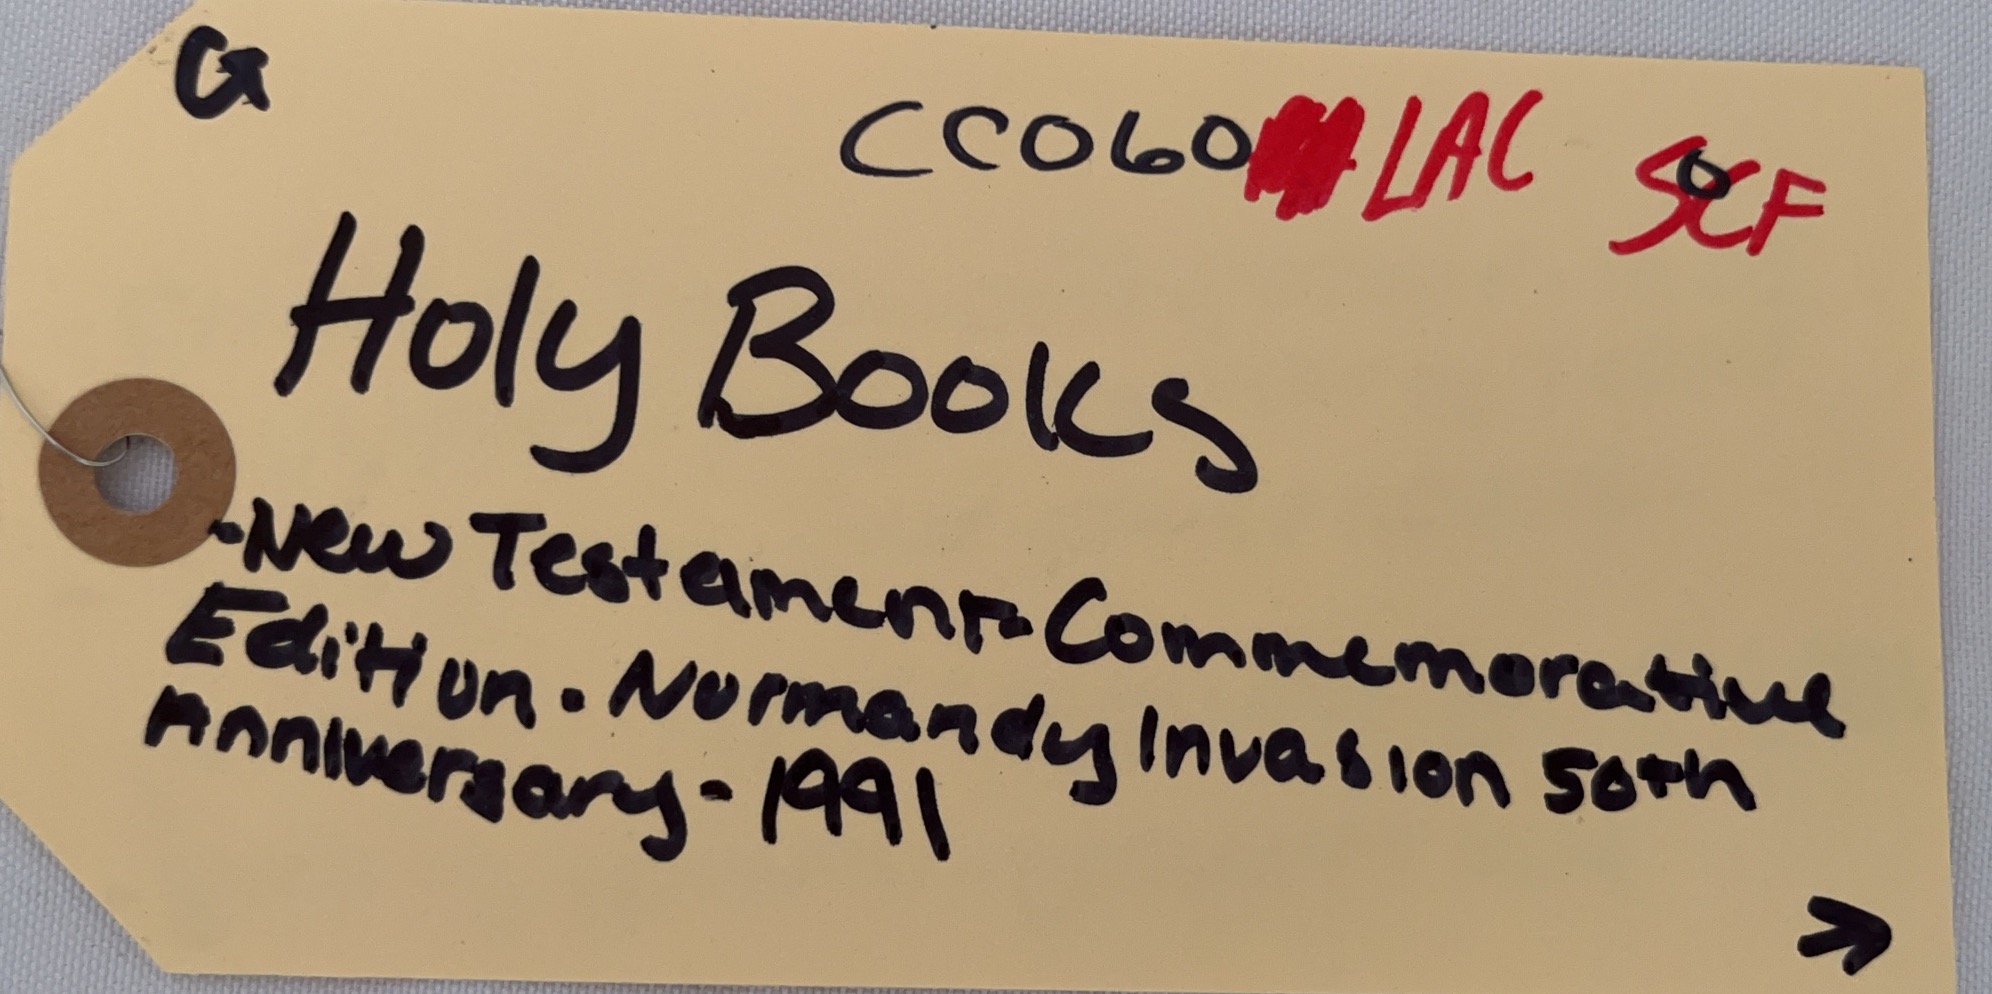 G
CC060 LAC SCF
Holy Books
-New Testament-Commemorative
Edition. Normandy Invasion 50th
Anniversary-1991
→